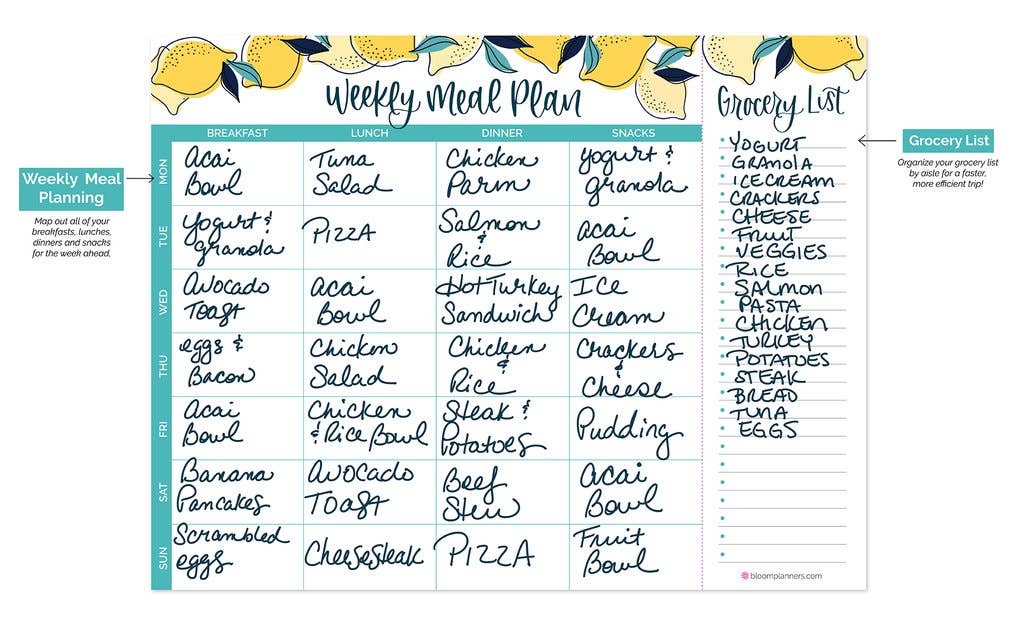 Weekly Meal Plan
Grocery List
BREAKFAST LUNCH DINNER SNACKS
MON
Acai
Bowl
Tuna
Salad
Chicken
Parm
Yogurt &
granola
TUE
Yogurt &
granola
PIZZA
Salmon
&
Rice
acai
Bowl
WED
Avocado
Toast
acai
Bowl
Hot Turkey
Sandwich
Ice
Cream
THU
eggs &
Bacon
Chicken
Salad
Chicken
&
Rice
Crackers
&
Cheese
FRI
Acai
Bowl
Chicken
& Rice Bowl
Steak &
Potatoes
Pudding
SAT
Banana
Pancakes
Avocado
Toast
Beef
Stew
Acai
Bowl
SUN
Scrambled
eggs
Cheesesteak
PIZZA
Fruit
Bowl
YOGURT
GRANOLA
ICECREAM
CRACKERS
CHEESE
FRUIT
VEGGIES
RICE
SALMON
PASTA
CHICKEN
TURKEY
POTATOES
STEAK
BREAD
TUNA
EGGS
bloomplanners.com
Weekly Meal
Planning
Map out all of your
breakfasts, lunches,
dinners and snacks
for the week ahead.
Grocery List
Organize your grocery list
by aisle for a faster,
more efficient trip!